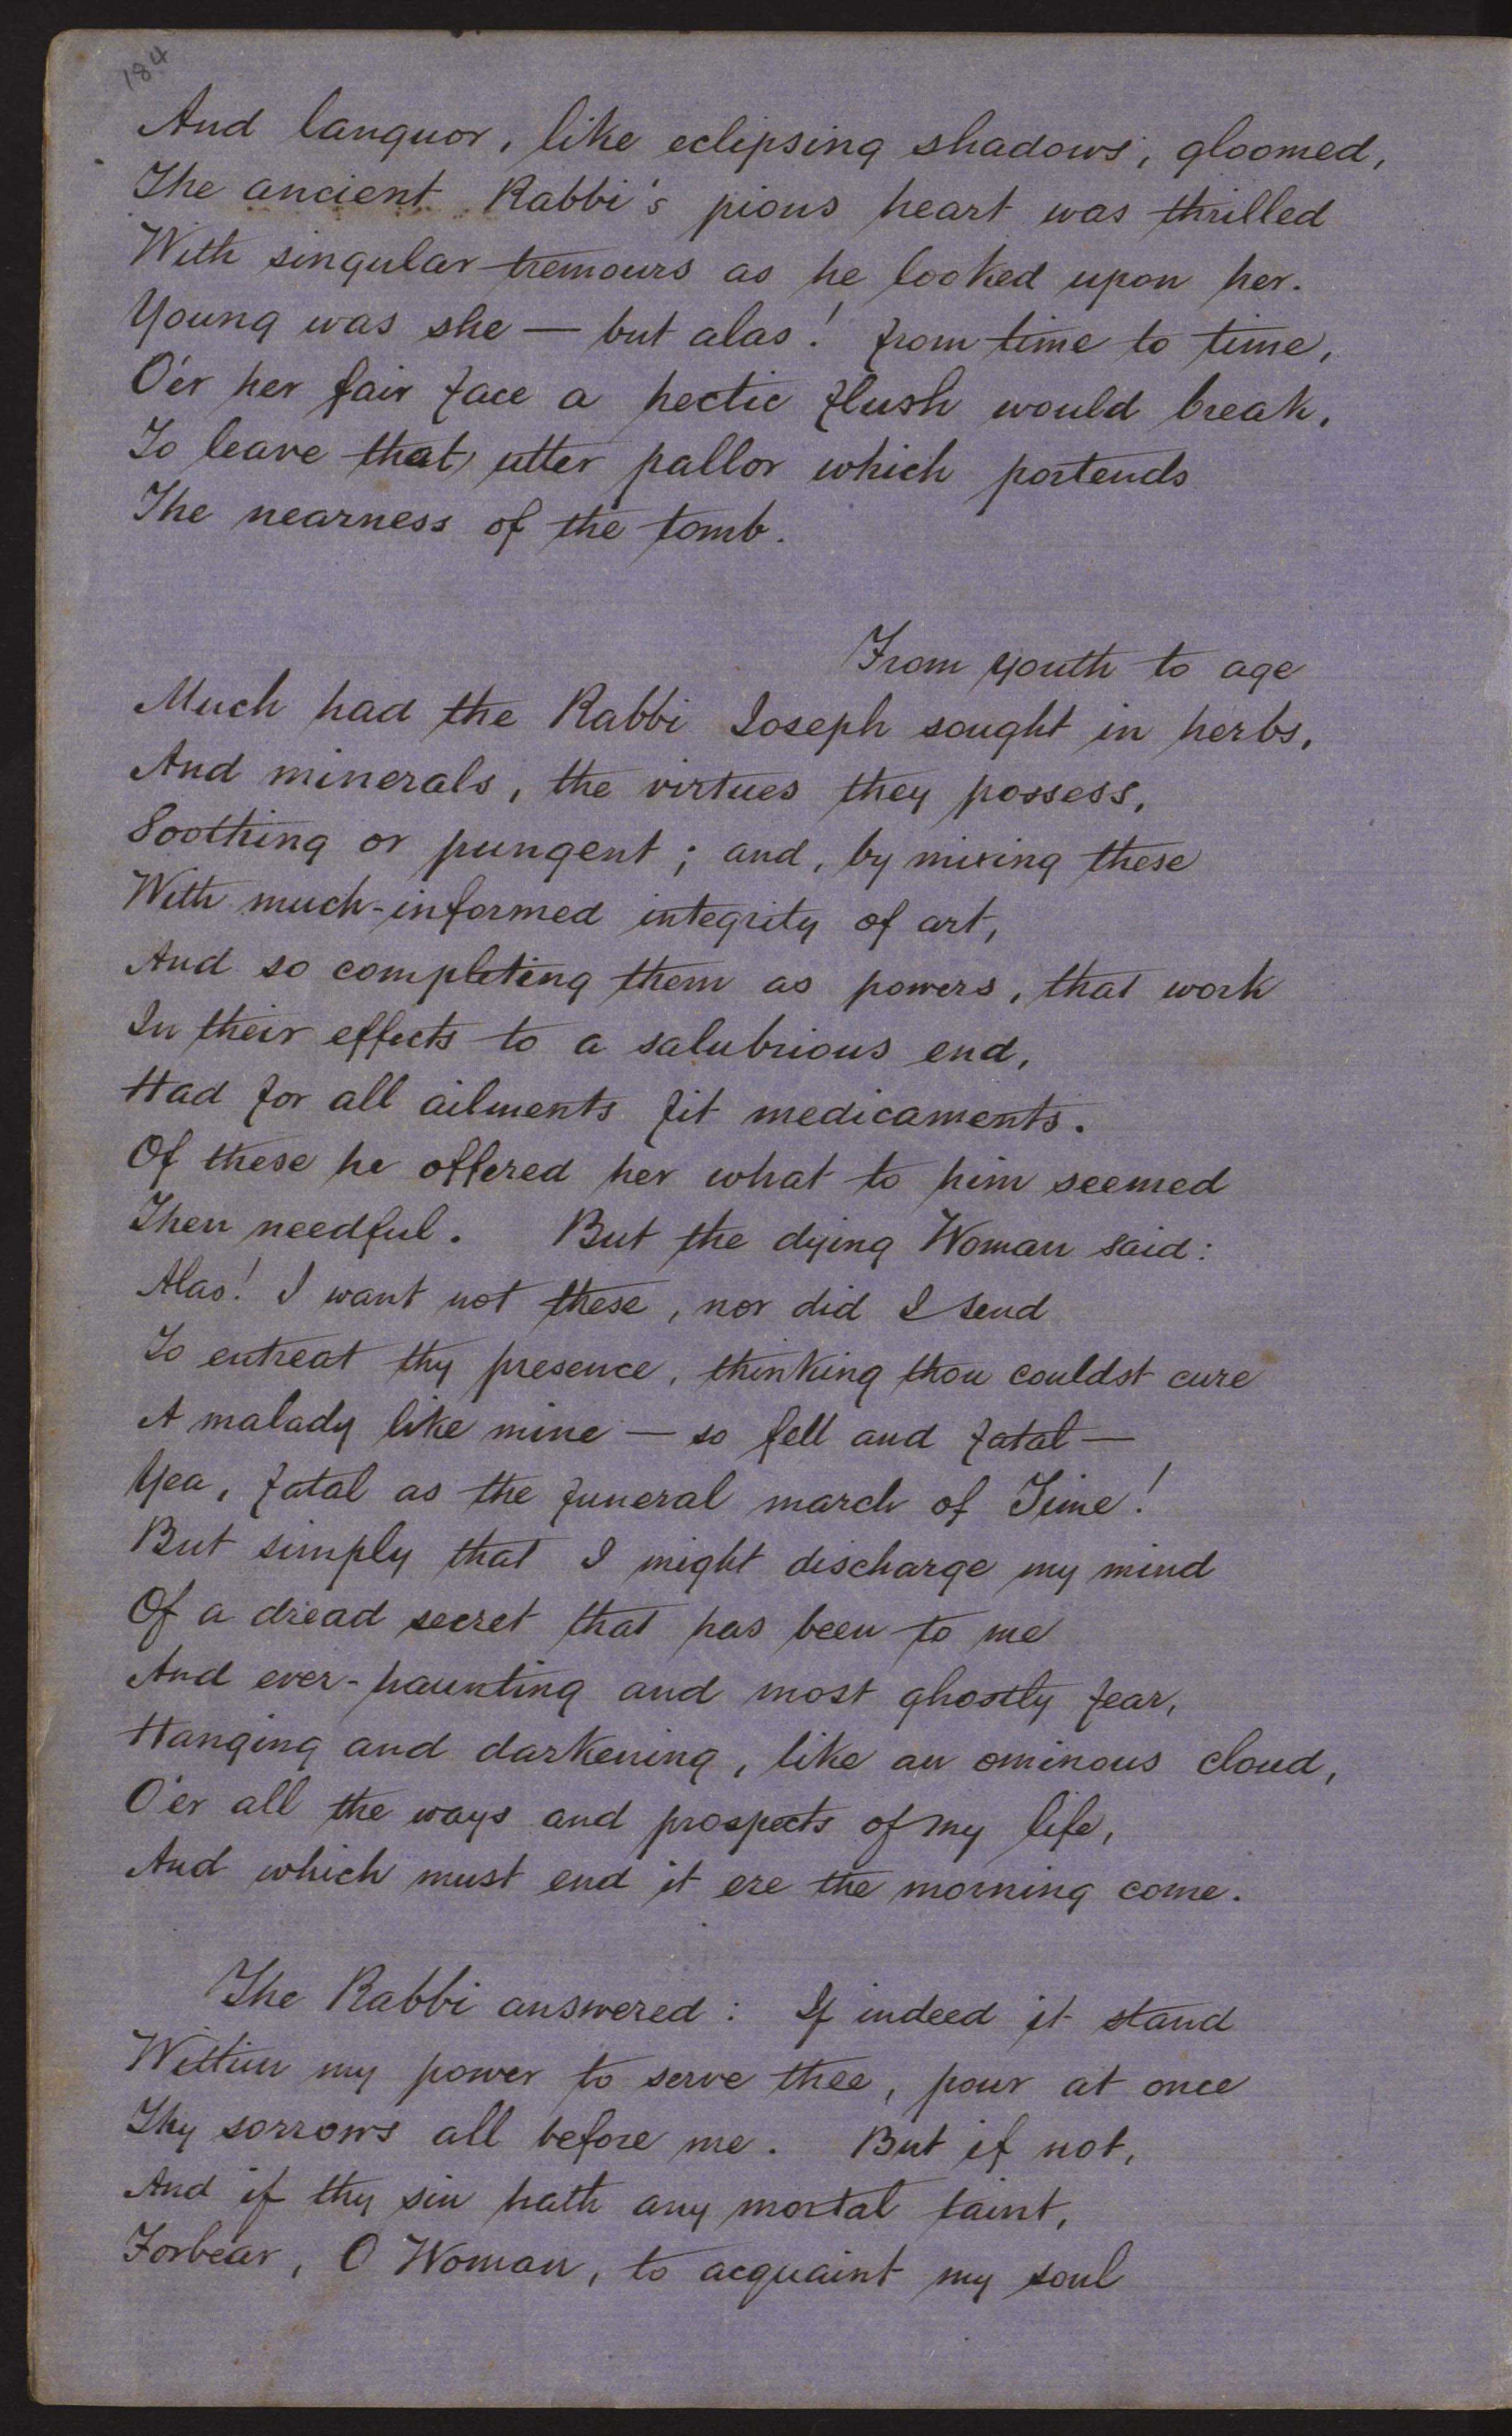 184
And languor, like eclipsing shadows, gloomed,
The ancient Rabbi's pious heart was thrilled
With singular tremours as he looked upon her.
Young was she — but alas! from time to time,
O'er her fair face a hectic flush would break,
To leave that utter pallor which portends
The nearness of the tomb.
From youth to age
Much had the Rabbi Joseph sought in herbs,
And minerals, the virtues they possess,
Soothing or pungent; and, by mixing these
With much-informed integrity of art,
And so completing them as powers, that work
In their effects to a salubrious end,
Had for all ailments fit medicaments.
Of these he offered her what to him seemed
Then needful. But the dying Woman said:
Alas! I want not these, nor did I send
To entreat thy presence, thinking thou couldst cure
A malady like mine — so fell and fatal —
Yea, fatal as the funeral march of Time!
But simply that I might discharge my mind
Of a dread secret that has been to me
And ever-haunting and most ghostly fear,
Hanging and darkening, like an ominous cloud,
O'er all the ways and prospects of my life,
And which must end it ere the morning come.
The Rabbi answered: If indeed it stand
Within my power to serve thee, pour at once
Thy sorrows all before me. But if not,
And if thy sin hath any mortal taint,
Forbear, O Woman, to acquaint my soul